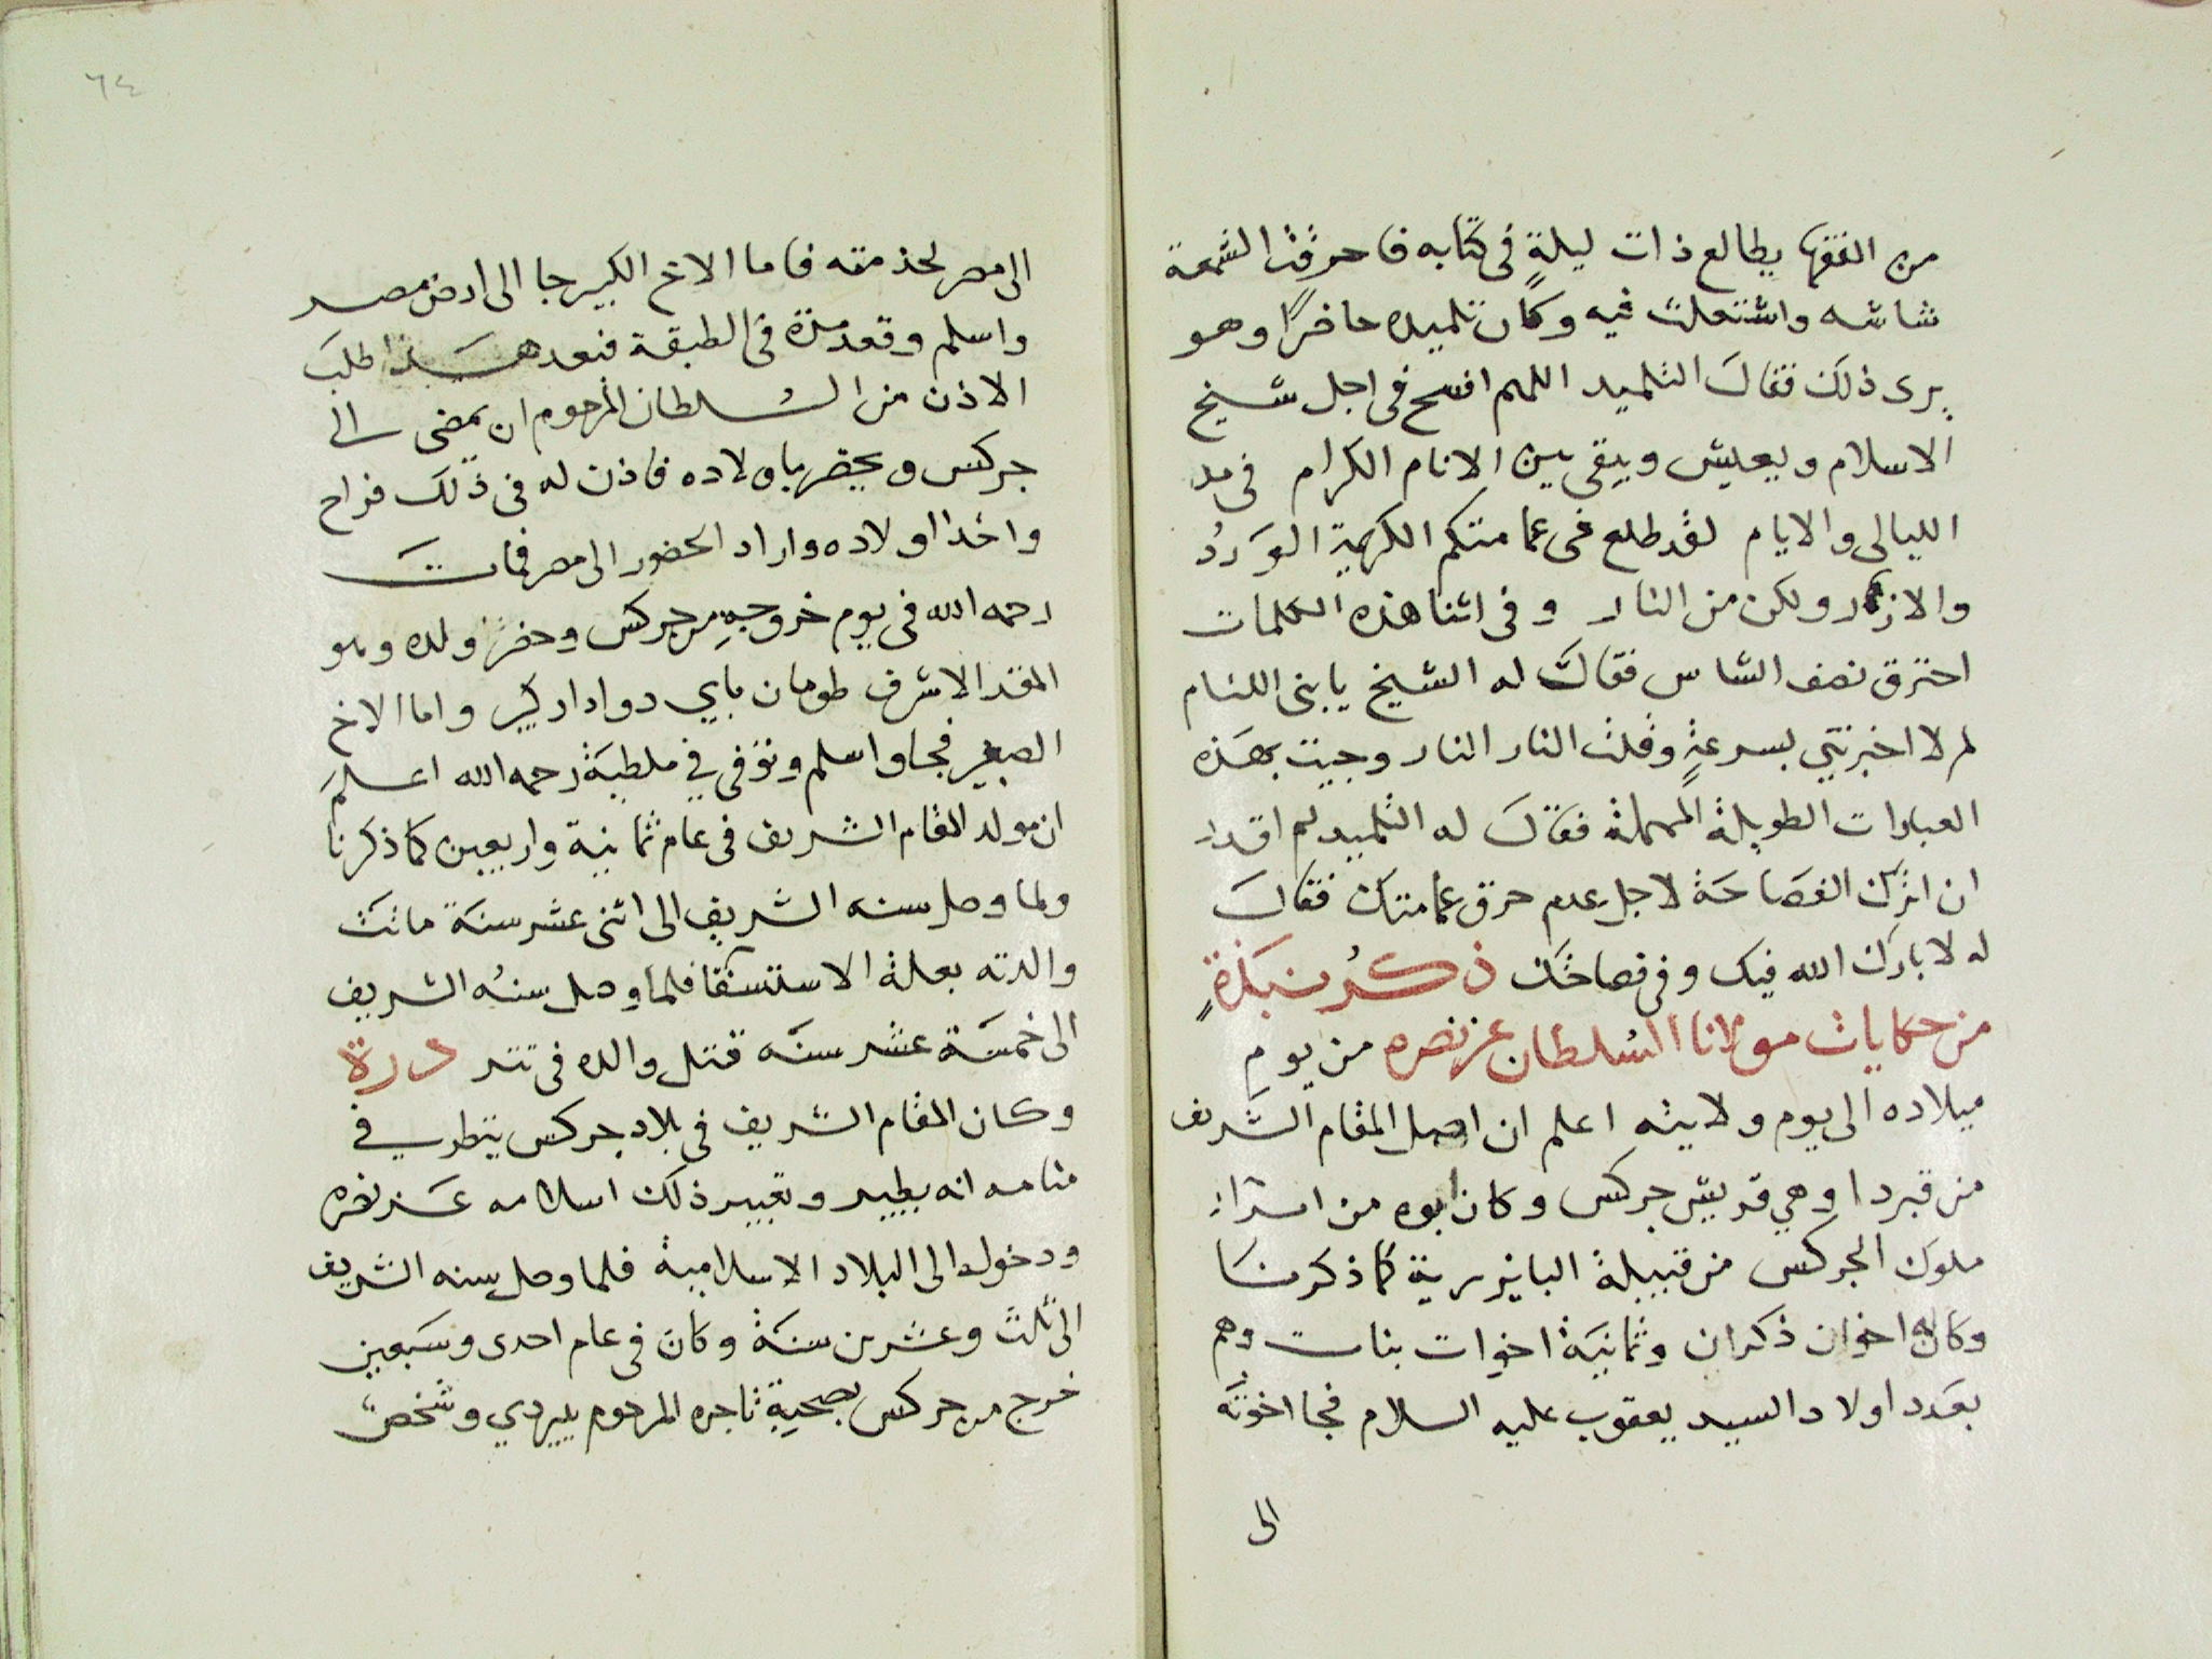 من الفقها يطالع ذات ليلةٍ فى كتابه فاحرقت الشمعة
شاشه واشتعلت فيه وكان تلميده حاضرًا وهو
يرى ذلك فقال التلميد اللهم افسح فى اجل شيخ
الاسلام ويعيش ويبقى بين الانام الكرام فى مد
الليالى والايام لقد طلع فى عمامتكم الكريمة الوَردُ
والازهار ولكن من النار وفى اثنا هذه الكلمات
احترق نصف الشاس فقال له الشيخ يا بنى اللئام
لم لا اخبرتني بسرعةٍ وقلت النار النار وجيت بهذه
العبارات الطويلة المهملة فقال له التلميد لم اقدر
ان اترك الفصَاحَة لاجل عدم حرق عمامتك فقال
له لا بارك الله فيك وفى فصاحتك ذكرُ نبذةٍ
من حكايات مولانا السُلطان عز نصره من يوم
ميلاده الى يوم ولايته اعلم ان اصل المقام الشريف
من قبردا وهي قريش جركس وكان ابوه من امراء
ملوك الجركس من قبيلة كما ذكرنا
وكان له اخوان ذكران وثمانية اخوات بنات وهم
بعَدد اولاد السيد يعقوب عليه السلام فجا اخوته
الى
٦٤
الى مصر لخدمته فاما الاخ الكبير جا الى ارض مصر
واسلم وقعد مدّة فى الطبقة فبعد هذا طلبَ
الاذن من السُلطان المرحوم ان يمضى الى
جركس ويحضر باولاده فاذن له فى ذلك فراح
واخذ اولاده واراد الحضور الى مصر فمات
رحمه الله فى يوم خروجهِ من جركس وحضر ولده وهو
المقر الاشرف طومان باي دوادار كبير واما الاخ
الصغير فجا واسلم وتوفى في ملطيَة رحمه الله اعلم
ان مولد المقام الشريف فى عام ثمانية واربعين كما ذكرنا
ولما وصل سنه الشريف الى اثنى عشر سنَة ماتت
والدته بعلة الاستسقا فلما وصل سنهُ الشريف
الى خمسَة عشر سنَه قتل والده فى تتر درة
وكان المقام الشريف فى بلاد جركس ينظر في
منامه انه يطير وتعبير ذلك اسلامه عَز نصره
ودخوله الى البلاد الاسلامية فلما وصل سنه الشريف
الى ثلث وعشرين سنَة وكان فى عام احدى وسَبعين
خرج من جركس بصحبةِ تاجره المرحوم بيبردي وشخص